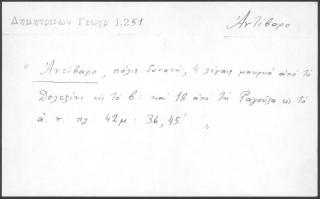 Δημητριέων Γεωγρ 1.251
Ἀντίβαρο
"Ἀντίβαρο, πόλις δυνατή, 4 λεύγαις μακρυά ἀπό τό
Δολτζίνι εἰς τό β: καί 18 ἀπό τήν Ραγούζα εἰς τό
ἀ. ν. πλ: 42 μ: 36, 45'"